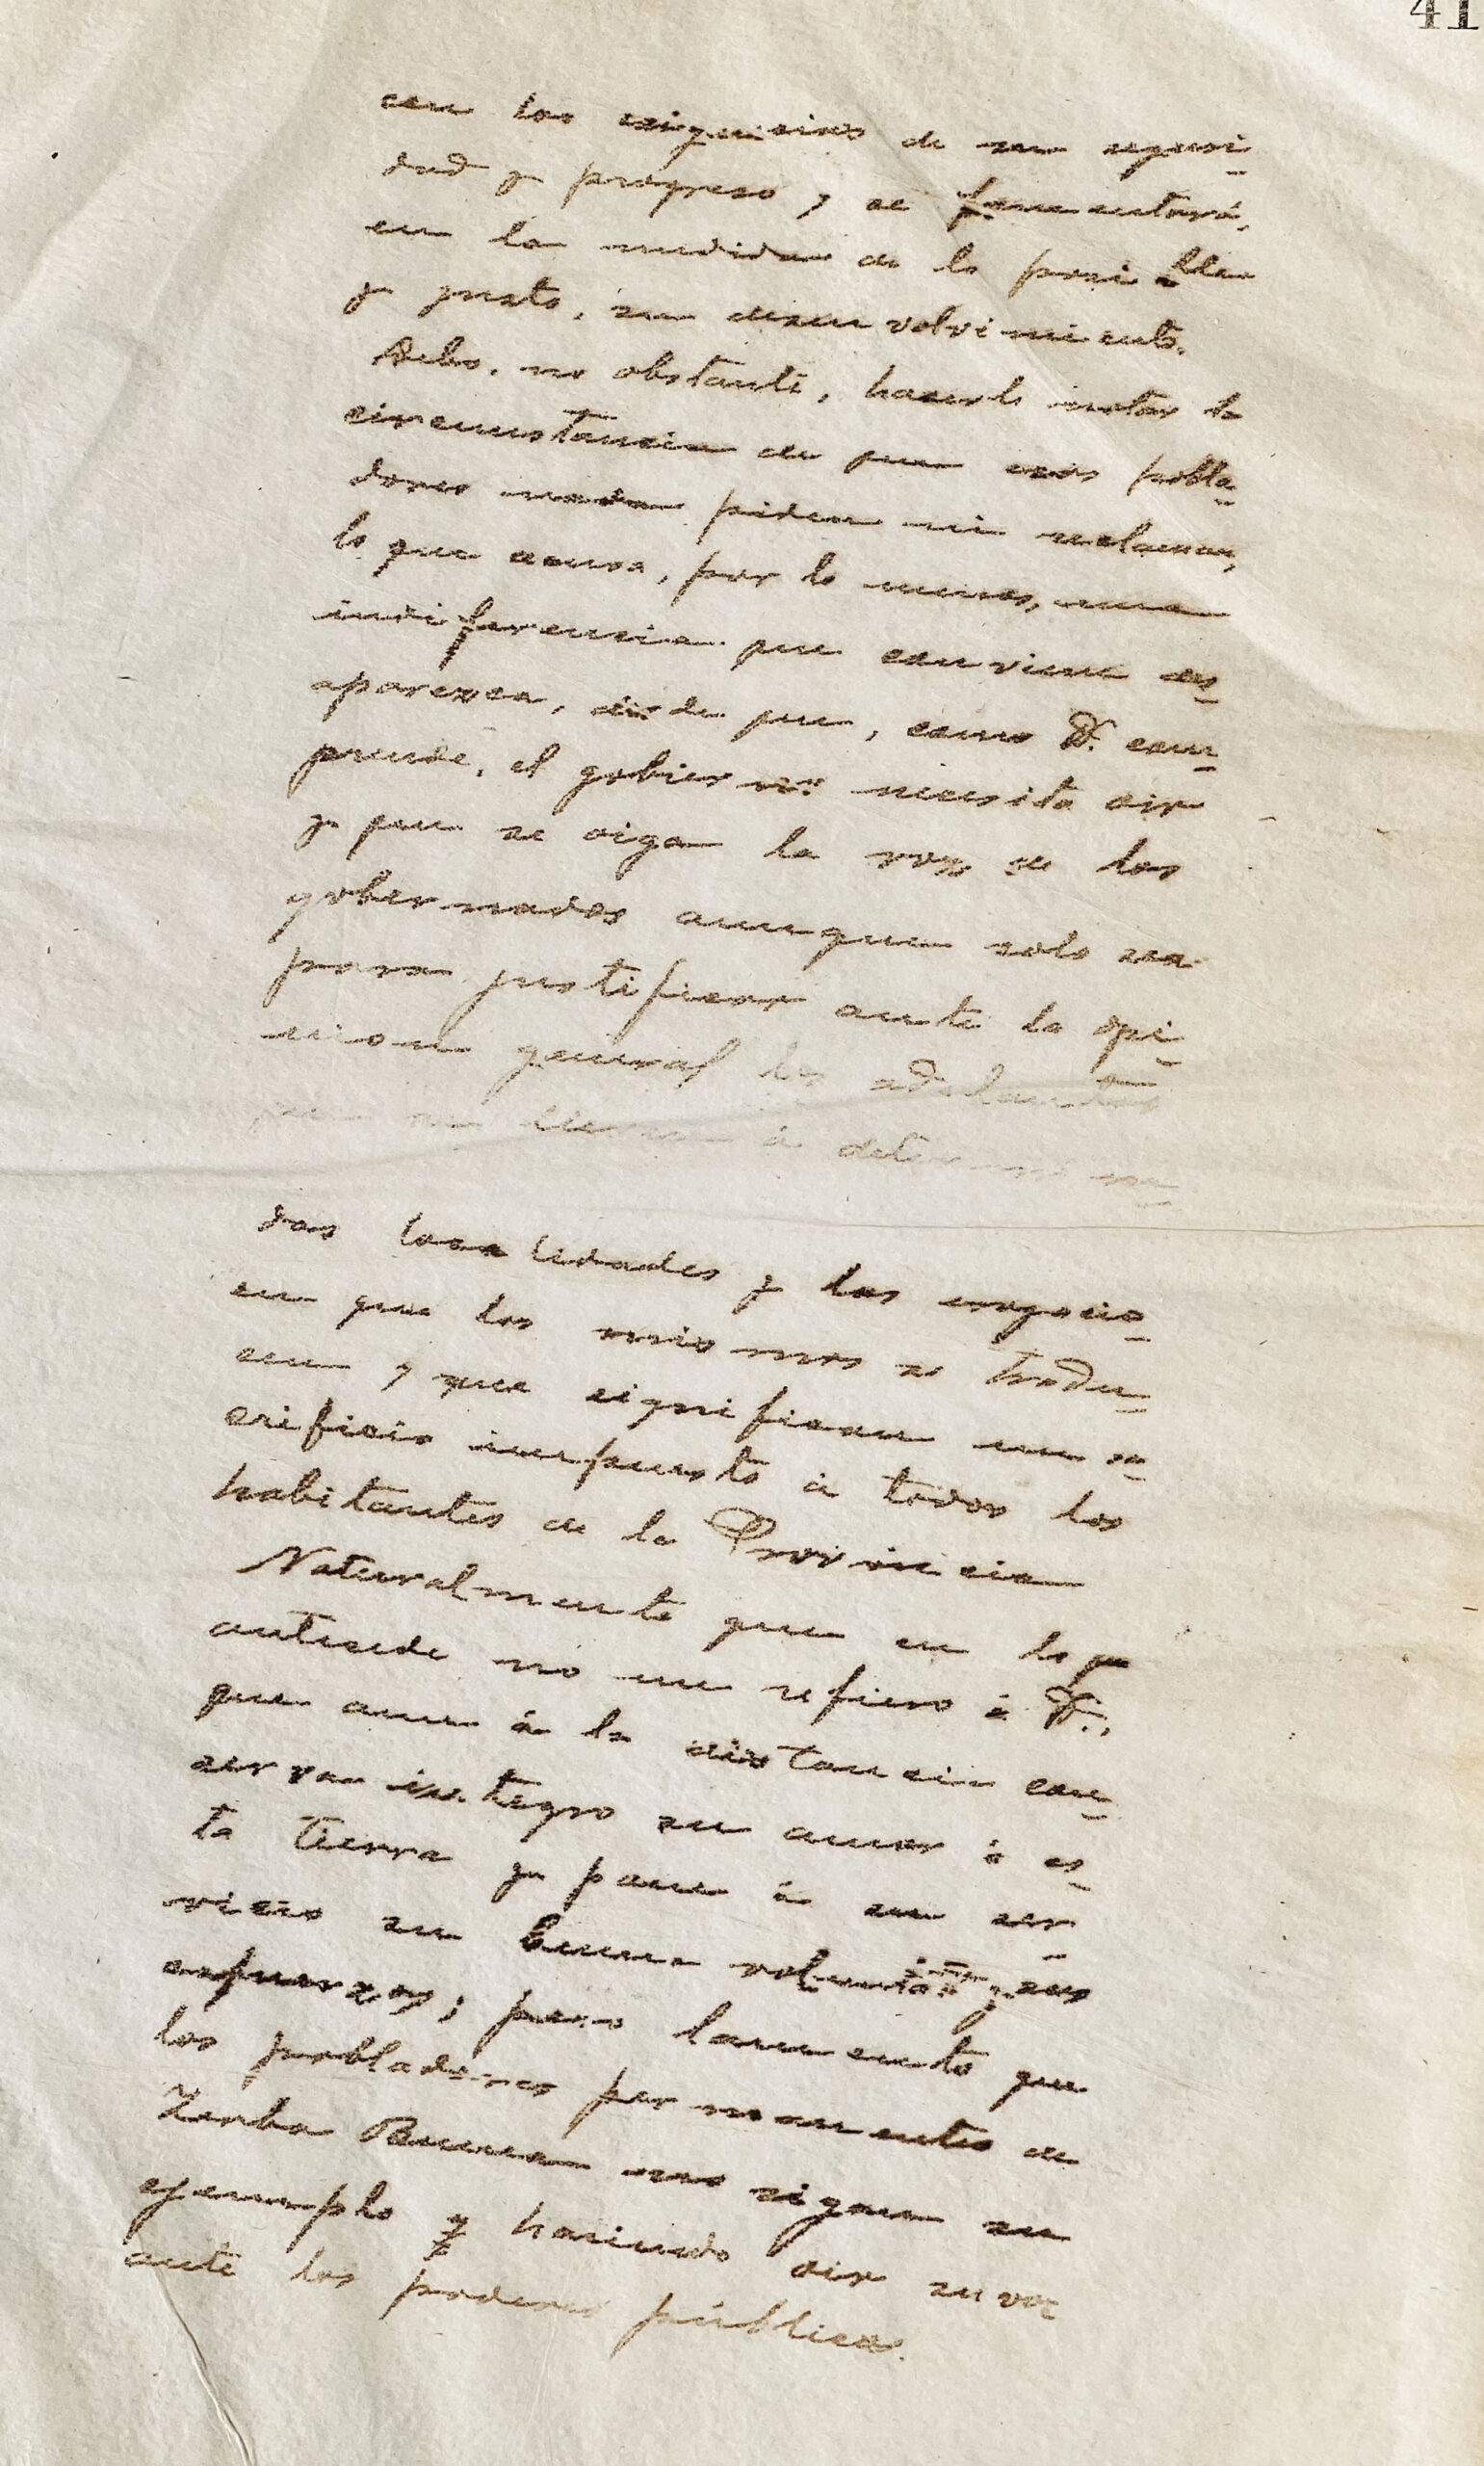 41
con las exigencias de su seguri-
dad y progreso y se fomentará,
en la medida de lo posible
y justo, su desenvolvimiento.
Debo, no obstante, hacerle notar la
circunstancia de que esos pobla-
dores nada piden ni reclaman,
lo que acusa, por lo menos, una
indiferencia que conviene des-
aparezca, desde que, como V. com-
prende, el gobierno necesita oir
y que se oiga la voz de los
gobernados aunque solo sea
para justificar ante la opi-
nion general los adelantos
que se llevan á determina-
das localidades y las erogacio-
en que los mismos se tradu-
cen y que significan un sa-
crificio impuesto á todos los
habitantes de la Provincia
Naturalmente que en lo que
antecede no me refiero á V.,
que aun á la distancia con-
serva integro su amor á es-
ta tierra y pone á su ser-
vicio su buena voluntad y sus
esfuerzos; pero lamento que
los pobladores permanentes de
Yerba Buena no sigan su
ejemplo y haciendo oir su voz
ante los poderes públicos.